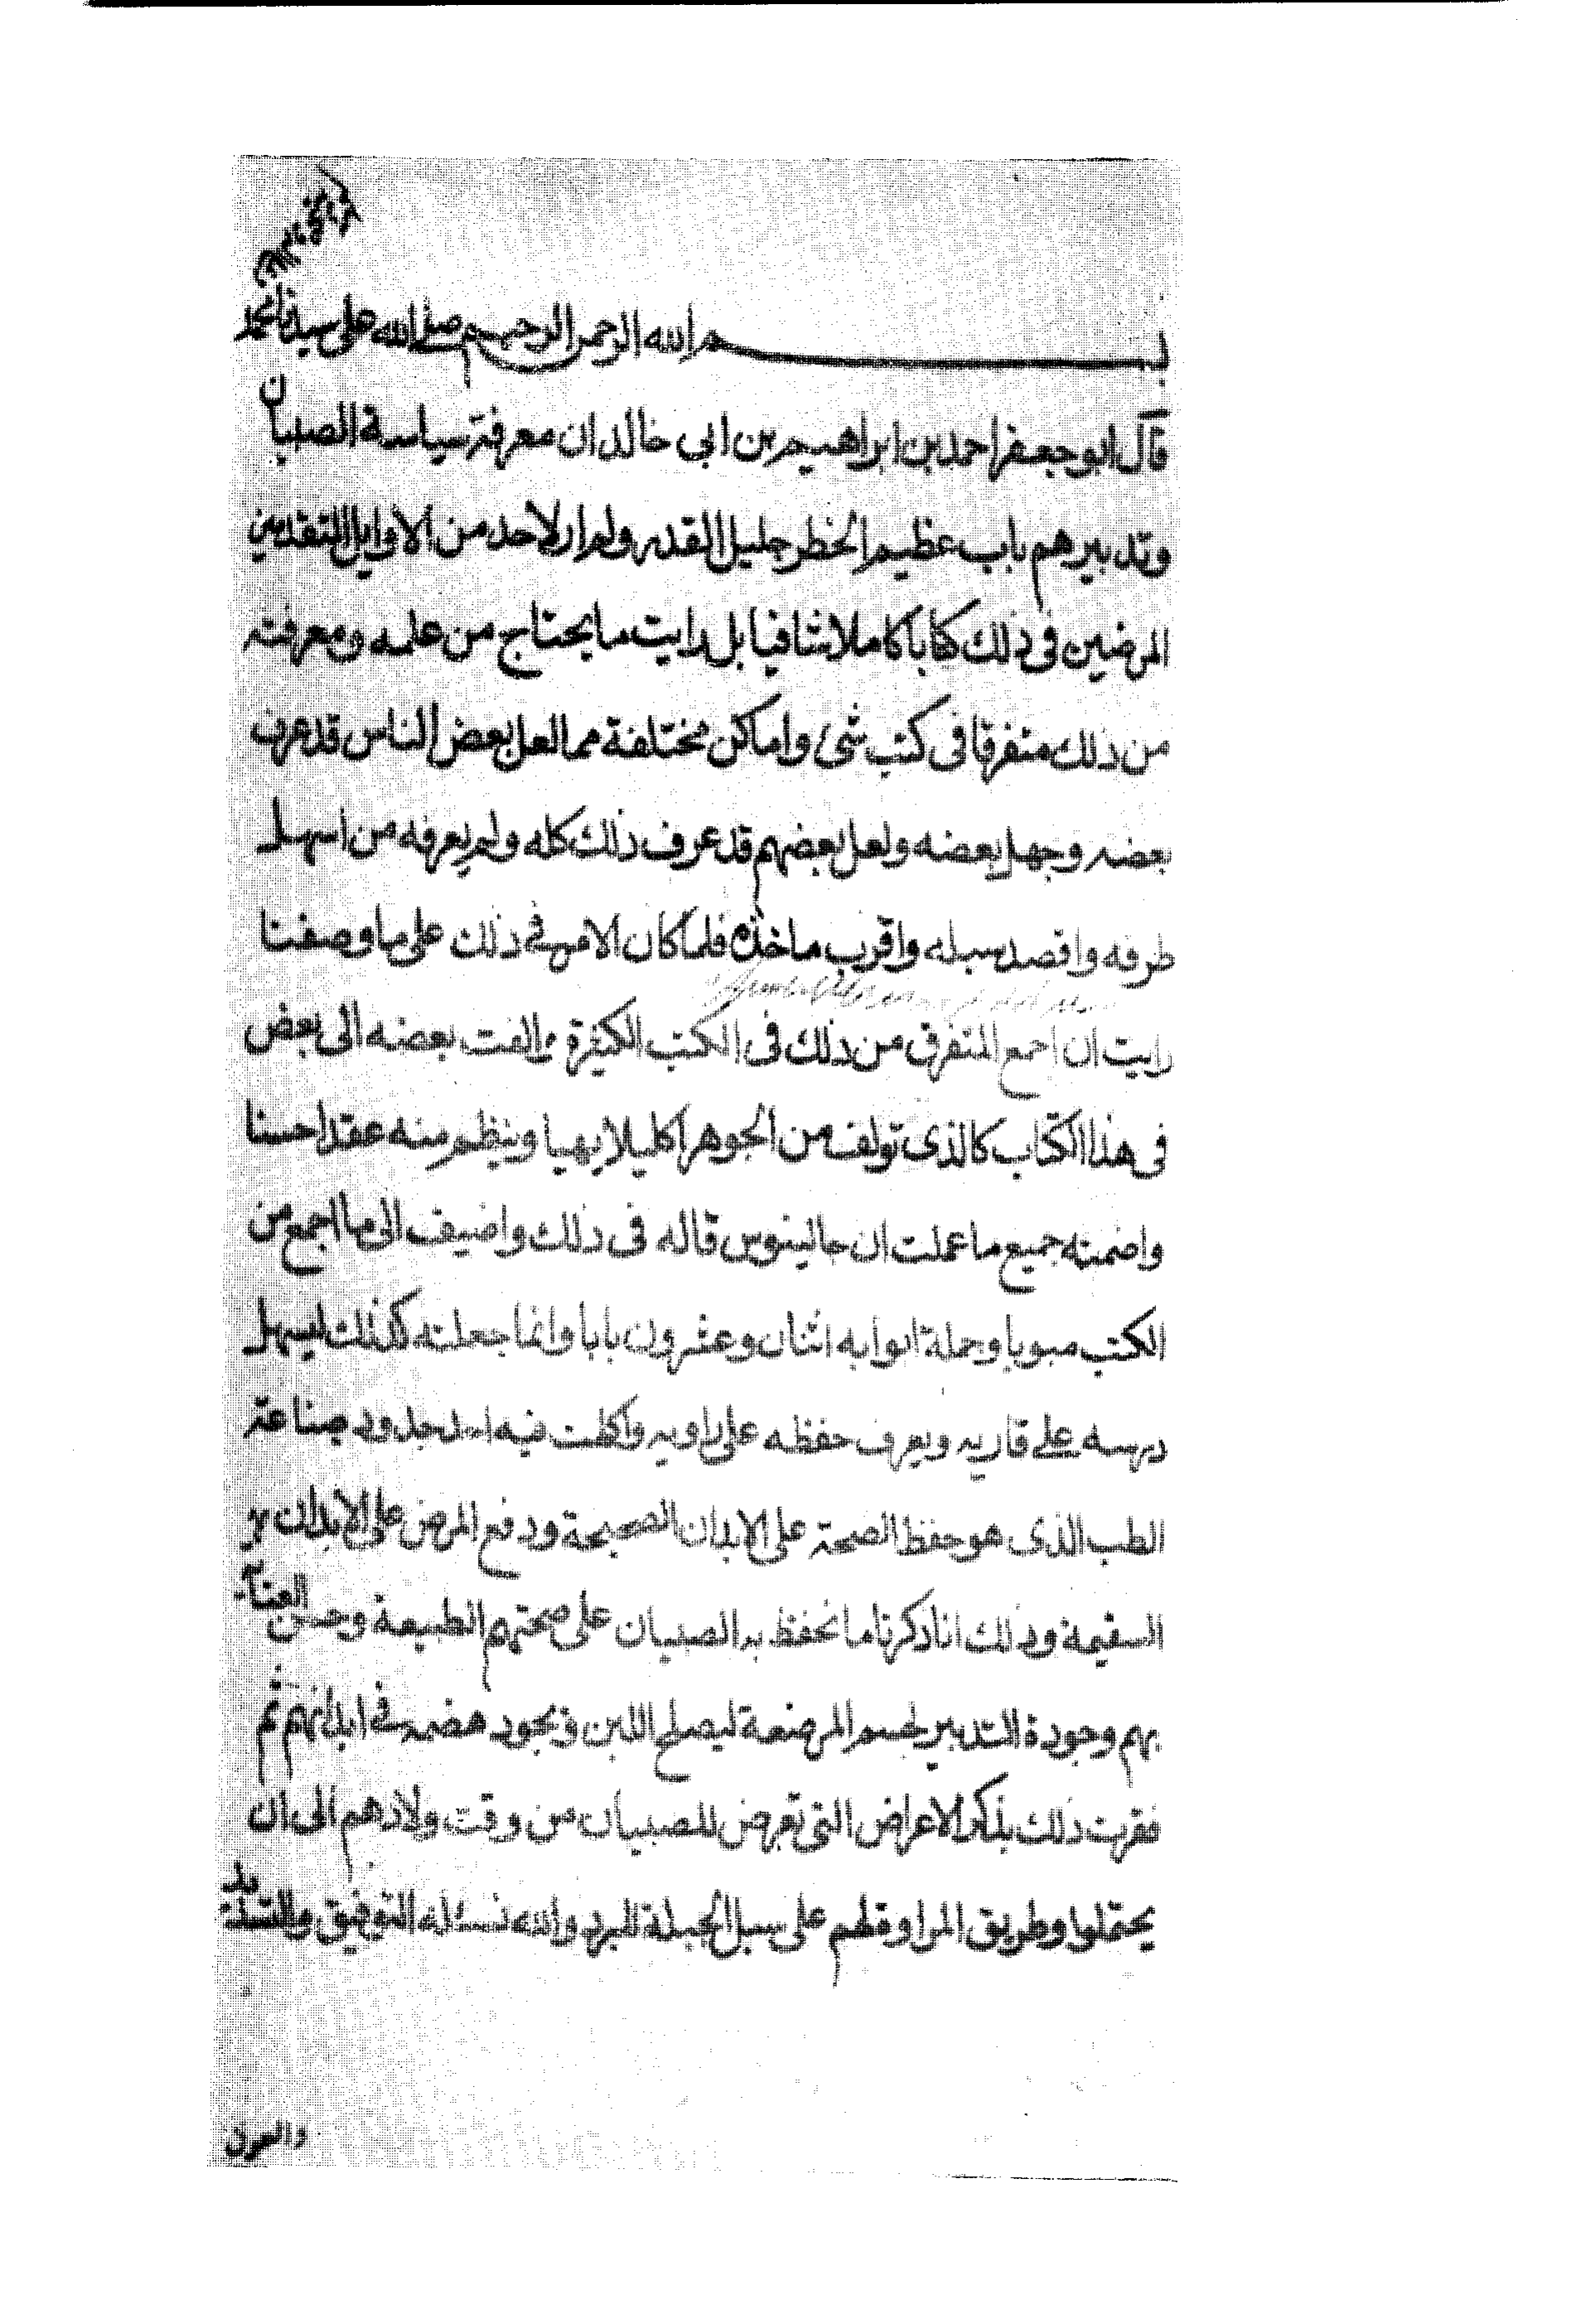 بسم الله الرحمن الرحيم صلى الله على سيدنا محمد
قال ابو جعفر احمد بن ابراهيم بن ابى خالد ان معرفة سياسة الصبيان
وتدبيرهم باب عظيم الخطر جليل القدر ولم ار لاحد من الاوايل المتقدمين
المرضين فى ذلك كتابا كاملا شافيا بل رايت ما يحتاج من علمه ومعرفته
من ذلك متفرقا فى كتب شتى واماكن مختلفة مما لعل بعض الناس قد عرف
بعضه وجهل بعضه ولعل بعضهم قد عرف ذلك كله ولم يعرفه من اسهل
طرقه واقصد سبله واقرب ماخذه فلما كان الامر فى ذلك على ما وصفنا
رايت ان اجمع المتفرق من ذلك فى الكتب الكثيرة والفت بعضه الى بعض
فى هذا الكتاب كالذى تولف من الجوهر اكليلا بهيا وينظم منه عقدا حسنا
واضمنه جميع ما عملت ان جالينوس قاله فى ذلك واضيف الى ما اجمع من
الكتب مبوبا وجملة ابوابه اثنان وعشرون بابا وانما جعلته كذلك ليسهل
درسه على قاريه ويعرف حفظه على راويه واكملت فيه حدود صناعة
الطب الذى هو حفظ الصحة على الابدان الصحيحة ودفع المرض على الابدان
السقيمة وذلك انا ذكرنا ما نحفظ به الصبيان على صحتهم الطبيعة وحسن العناء
بهم وجودة التدبير لجسم المرضعة ليصلح اللبن ويجود هضمه فى ابدانهم ثم
فقربت ذلك بذكر الاعراض التى تعرض للصبيان من وقت ولادهم الى ان
يحتملوا وطريق المداوة لهم على سبل الجبلة للبرء والله نسئله التوفيق والتسديد
والعون